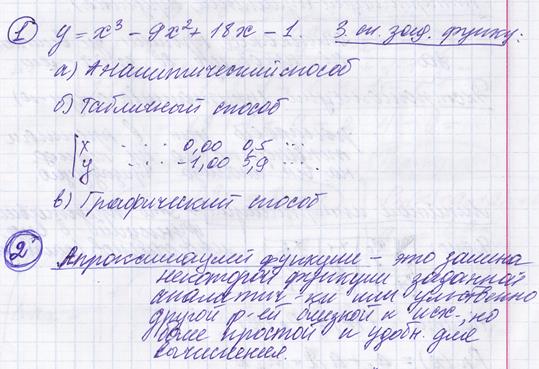 1 y = x³ - 9x² + 18x - 1. 3 сп. зад. функц:
а) Аналитический способ
б) Табличный способ
x ... 0,00 0,5 ...
y ... -1,00 5,9 ...
в) Графический способ
2 Апроксимацией функции - это замена
некоторой функции заданной
аналитич-ки или
другой ф-ей близкой к исх., но
более простой и удобн. для
вычисления.